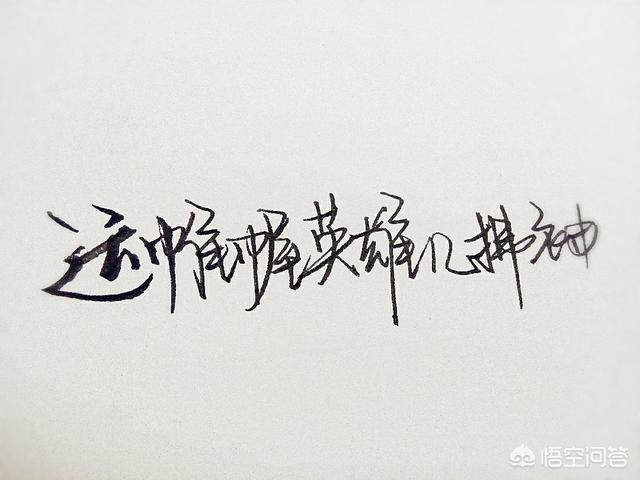 运帷帷英雄几拂袖
悟空问答